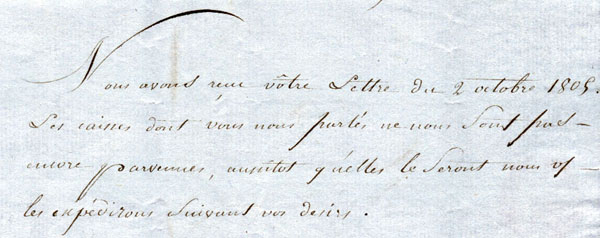 Nous avons reçu vôtre Lettre du 2 octobre 1805.
Les caisses dont vous nous parlés ne nous Sont pas
encore parvenues, aussitot qu'elles le Seront nous vs
les expédirons Suivant vos desirs.